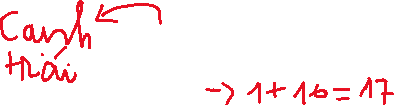 Cạnh
trái
-> 1 + 16 = 17